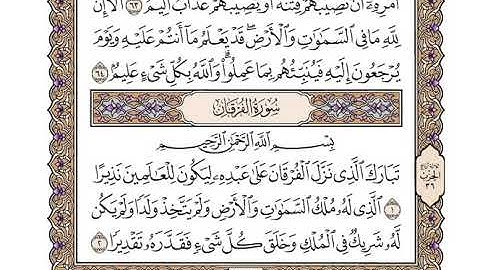 أَمْرِهِۦٓ أَن تُصِيبَهُمْ فِتْنَةٌ أَوْ يُصِيبَهُمْ عَذَابٌ أَلِيمٌ ٦٣ أَلَآ إِنَّ
لِلَّهِ مَا فِى السَّمَٰوَٰتِ وَالْأَرْضِ ۖ قَدْ يَعْلَمُ مَآ أَنتُمْ عَلَيْهِ وَيَوْمَ
يُرْجَعُونَ إِلَيْهِ فَيُنَبِّئُهُم بِمَا عَمِلُوا۟ ۗ وَاللَّهُ بِكُلِّ شَىْءٍ عَلِيمٌۢ ٦٤
سُورَةُ الْفُرْقَانِ
بِسْمِ اللَّهِ الرَّحْمَٰنِ الرَّحِيمِ
تَبَارَكَ الَّذِى نَزَّلَ الْفُرْقَانَ عَلَىٰ عَبْدِهِۦ لِيَكُونَ لِلْعَٰلَمِينَ نَذِيرًا
١ الَّذِى لَهُۥ مُلْكُ السَّمَٰوَٰتِ وَالْأَرْضِ وَلَمْ يَتَّخِذْ وَلَدًا وَلَمْ يَكُن
لَّهُۥ شَرِيكٌ فِى الْمُلْكِ وَخَلَقَ كُلَّ شَىْءٍ فَقَدَّرَهُۥ تَقْدِيرًا ٢
الحزب
٣٦